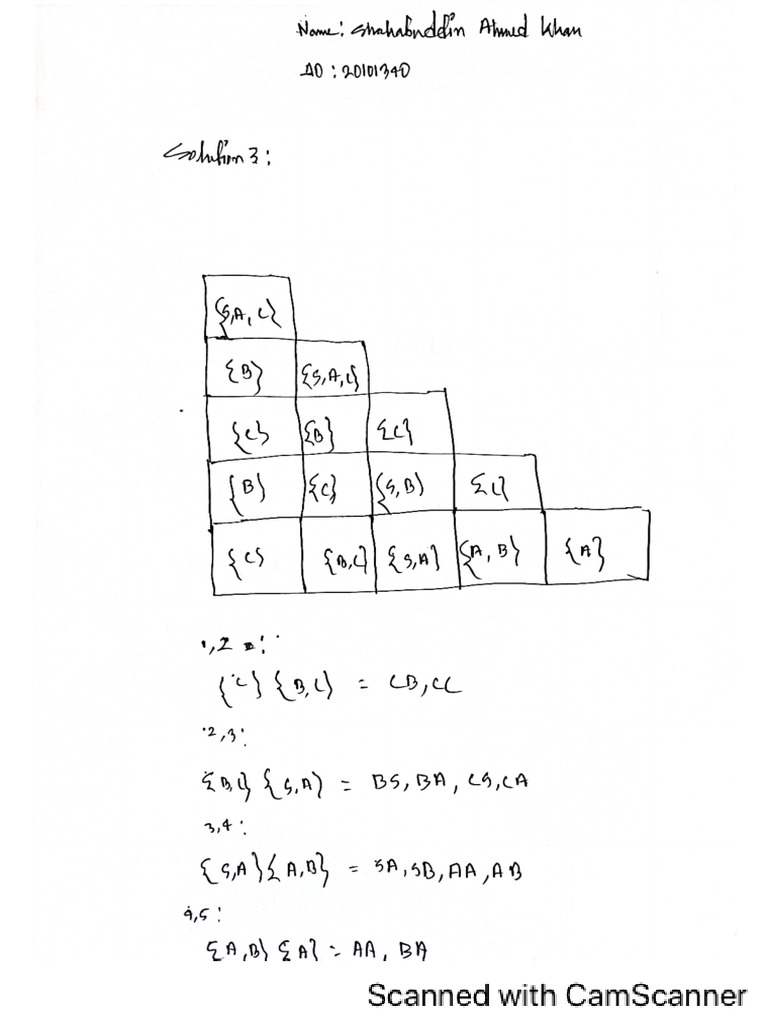 Name: Shahabuddin Ahmed Khan
ID: 20101340
Solution 3:
{S,A,C}
{B} {S,A,C}
{C} {B} {C}
{B} {C} {S,B} {C}
{C} {B,C} {S,A} {A,B} {A}
1,2 :
{C} {B,C} = CB, CC
2,3:
{B,C} {S,A} = BS, BA, CS, CA
3,4:
{S,A} {A,B} = SA, SB, AA, AB
4,5:
{A,B} {A} = AA, BA
Scanned with CamScanner